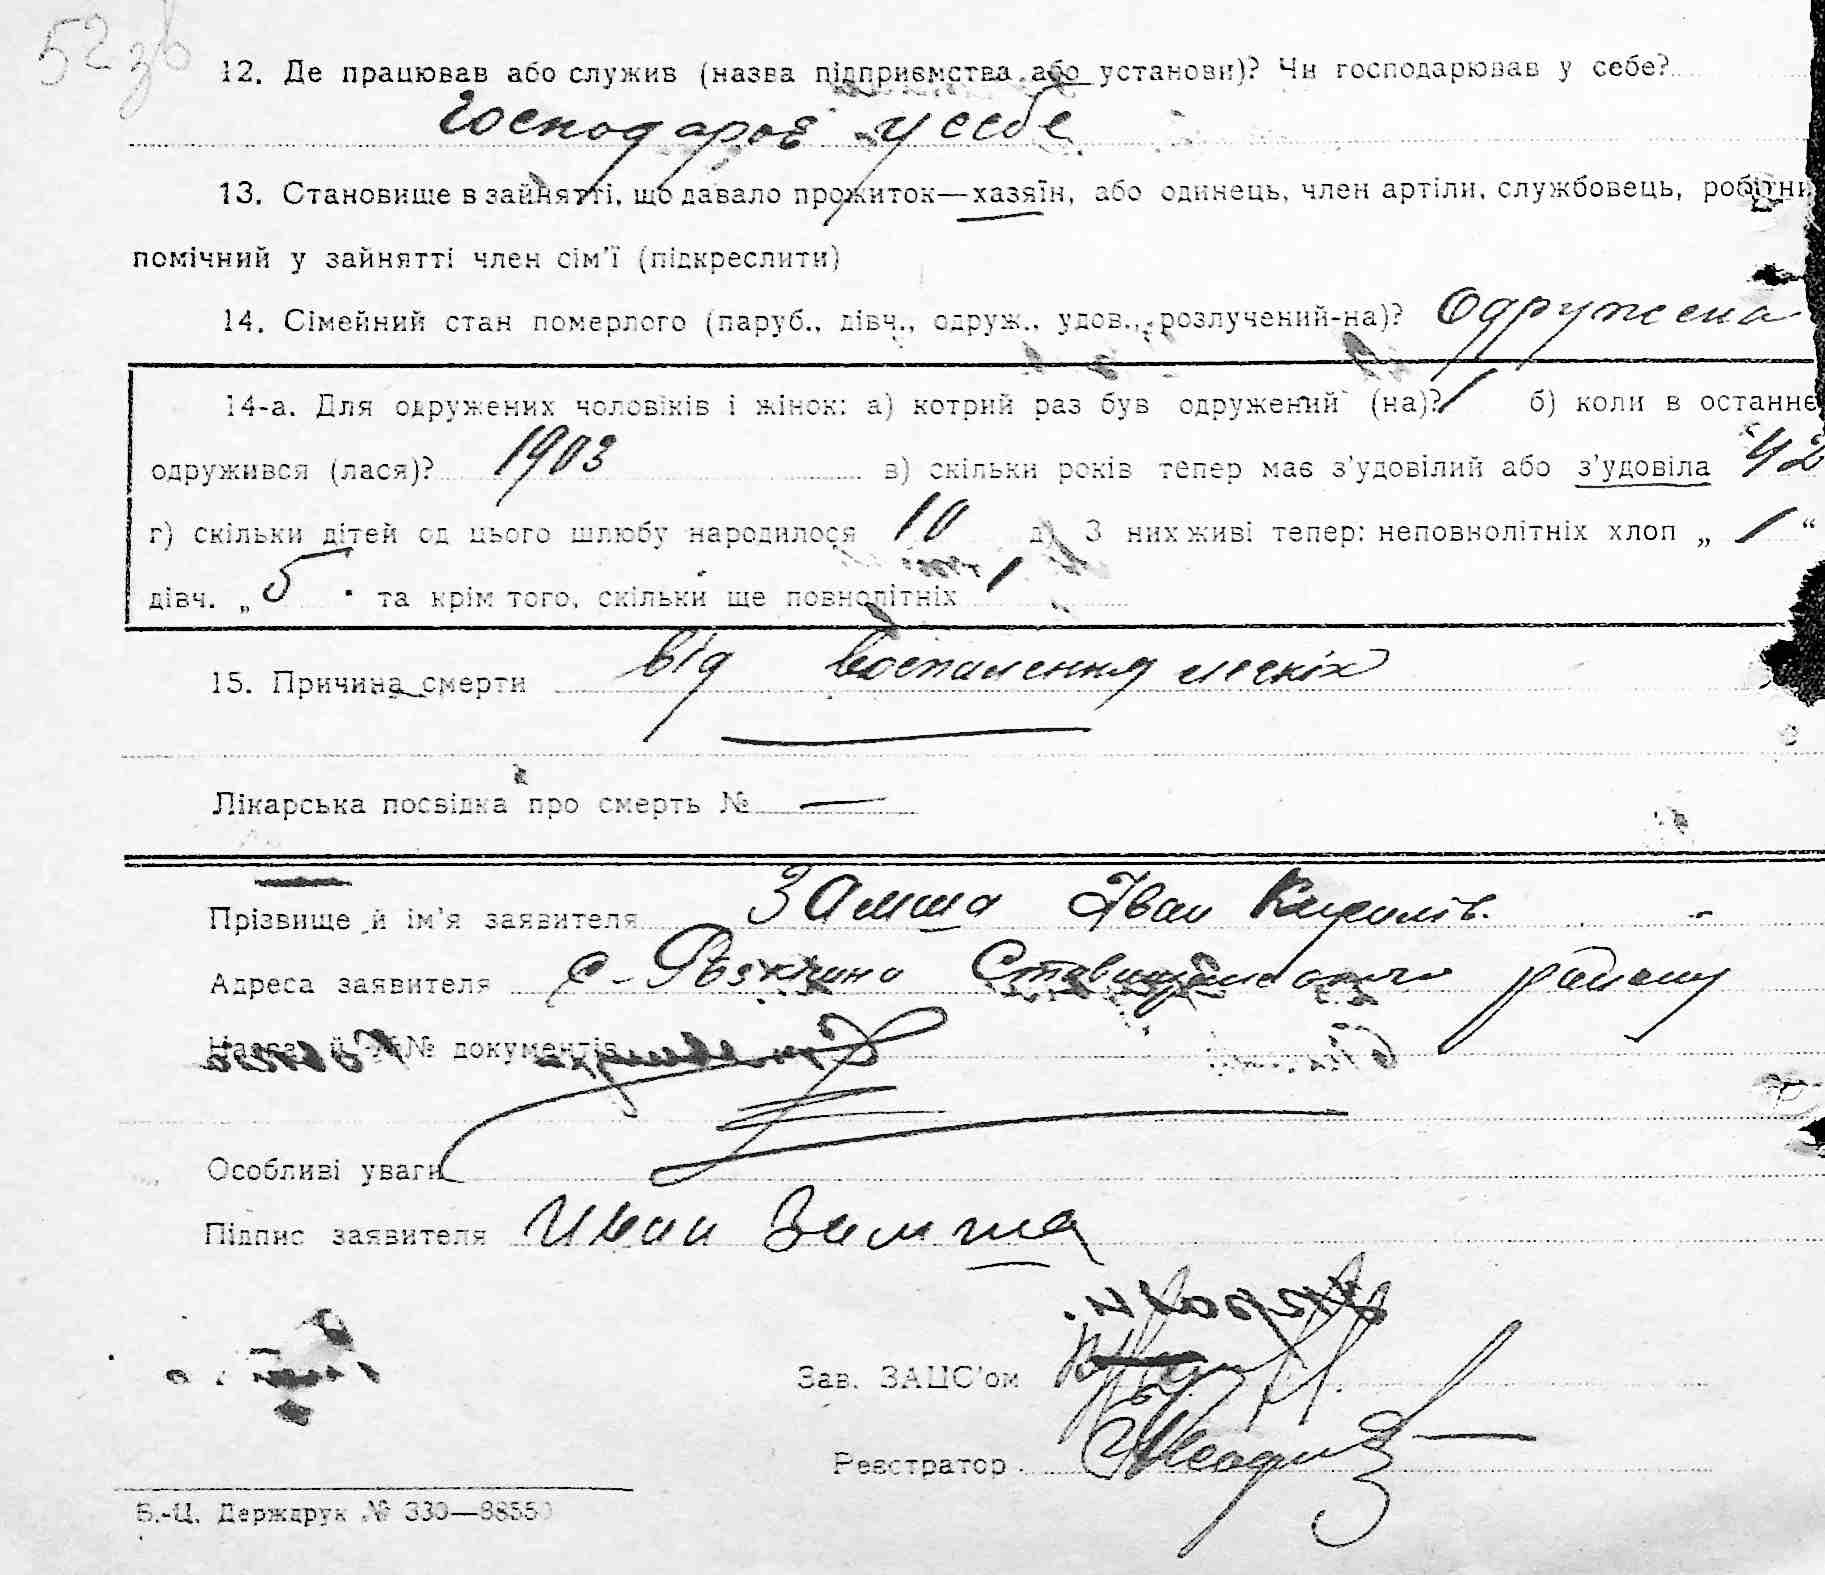 52 зв
12. Де працював або служив (назва підприємства або установи)? Чи господарював у себе?
Господарюв у себе
13. Становище в зайнятті, що давало прожиток—хазяїн, або одинець, член артіли, службовець, робітни
помічний у зайнятті член сім'ї (підкреслити)
14. Сімейний стан померлого (паруб., дівч., одруж., удов., розлучений-на)? Одружена
14-а. Для одружених чоловіків і жінок: а) котрий раз був одружений (на)? 1 б) коли в останнє
одружився (лася)? 1903 в) скільки років тепер має з'удовілий або з'удовіла 42
г) скільки дітей од цього шлюбу народилося 10 д) З них живі тепер: неповнолітніх хлоп „ 1 “
дівч. „ 5 " та крім того, скільки ще повнолітніх 1
15. Причина смерти від воспалення легкіх
Лікарська посвідка про смерть № —
Прізвище й ім'я заявителя Замша Іван Кирилів.
Адреса заявителя с. Розкішна Ставищанського району
Назва й №№ документів
Особливі уваги
Підпис заявителя Иван Замша
Зав. ЗАЦС'ом
Реєстратор
Б.-Ц. Держдрук № 330—88550